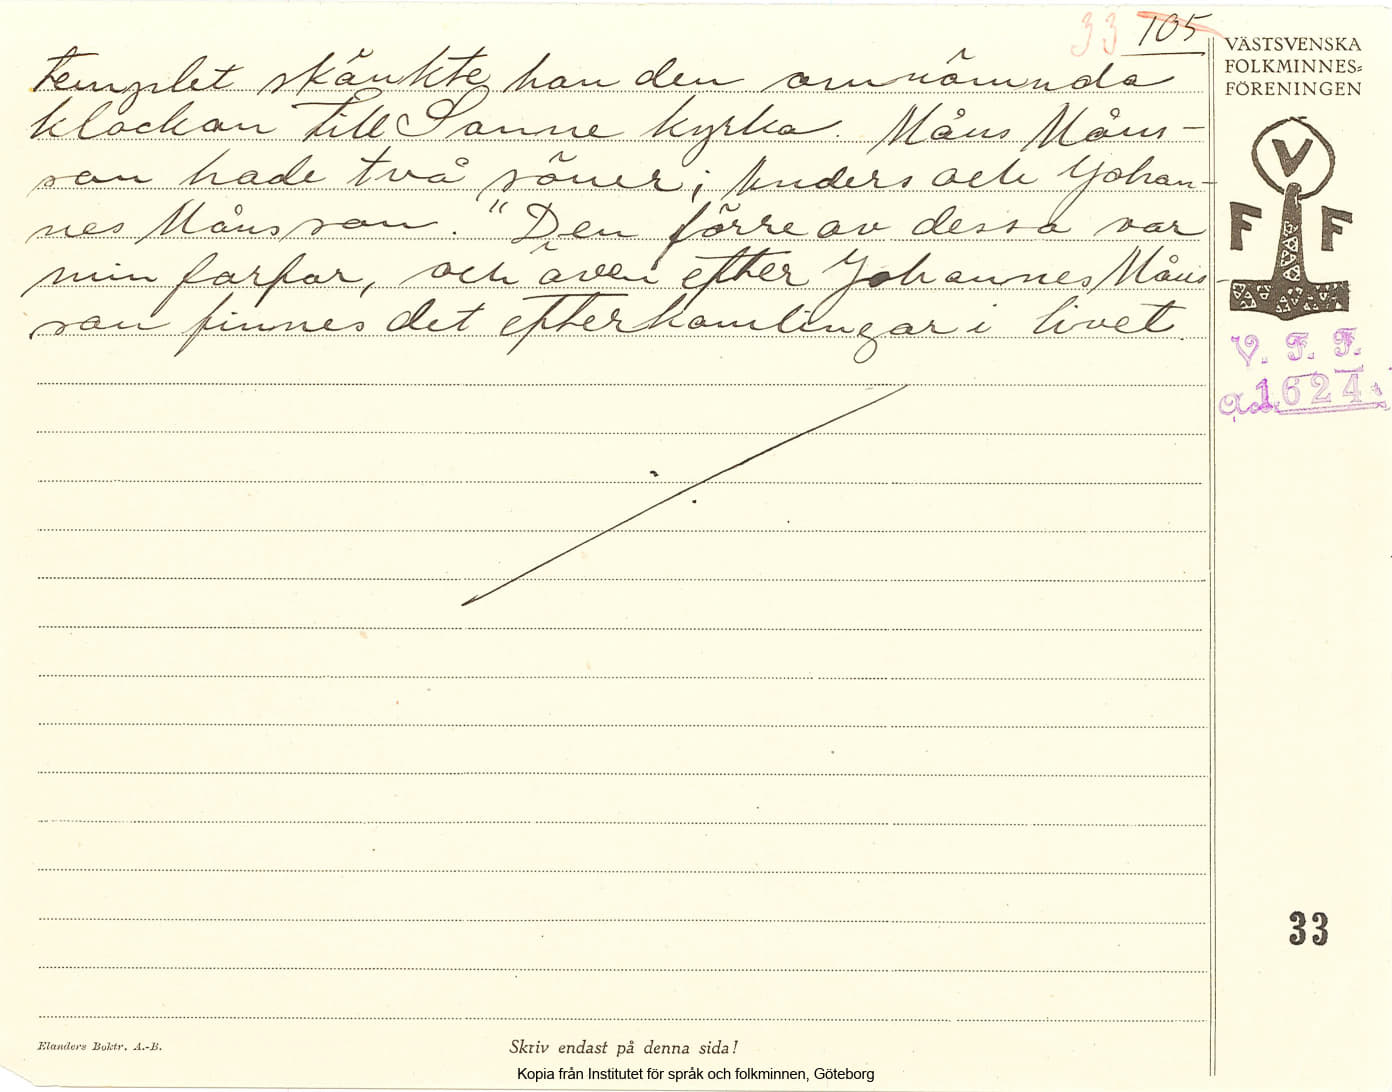 33 105
VÄSTSVENSKA
FOLKMINNES=
FÖRENINGEN
templet skänkte han den omnämnda
klockan till Sanne kyrka. Måns Måns-
son hade två söner; Anders och Johan-
nes Månsson. "Den förre av dessa var
min farfar, och även efter Johannes Måns-
son finnes det efterkomlingar i livet.
V
F F
V. F. F.
1624
33
Elanders Boktr. A.-B.
Skriv endast på denna sida!
Kopia från Institutet för språk och folkminnen, Göteborg